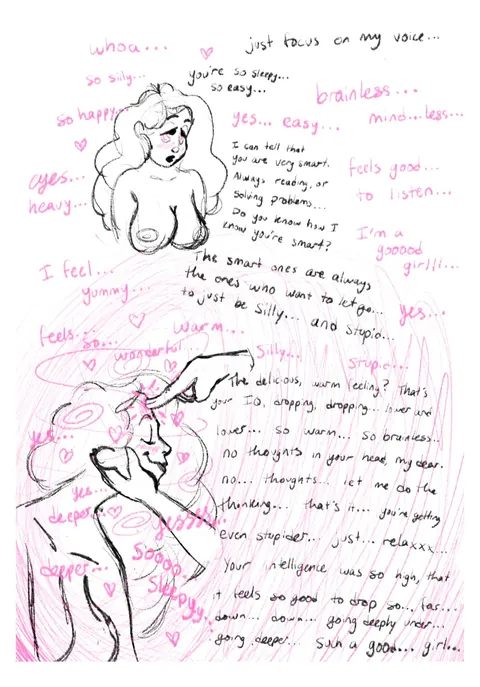 whoa...
just focus on my voice...
so silly...
you're so sleepy...
so easy...
brainless...
so happy...
yes... easy...
mind...less...
I can tell that
you are very smart.
Always reading, or
solving problems...
Do you know how I
know you're smart?
feels good...
to listen...
eyes...
heavy...
I'm a
gooood
girlll...
yes...
The smart ones are always
the ones who want to let go...
to just be silly... and stupid...
I feel...
yummy...
feels...
so...
wonderful...
warm...
Silly...
stupid...
The delicious, warm feeling? That's
your IQ, dropping, dropping... lower and
lower... so warm... so brainless..
no thoughts in your head, my dear.
no... thoughts... let me do the
thinking... that's it... you're getting
even stupider... just... relaxxx...
Your intelligence was so high, that
it feels so good to drop so... far...
down... down... going deeply under...
going deeper... Such a good... girl...
yes...
yes...
deeper...
yesss...
deeper...
Soooo
Sleepyy..